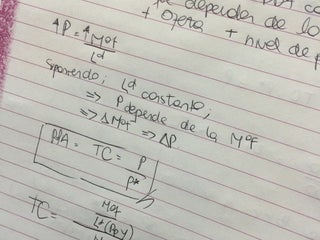 depender de lo
+ Ojera + nivel de p
↑P = ↑M^of / L^d
Suponiendo; L^d constante;
=> P depende de la M^of
=> ΔM^of => ΔP
PPA = TC = P / P*
TC = M^of / L^d (P, Y)